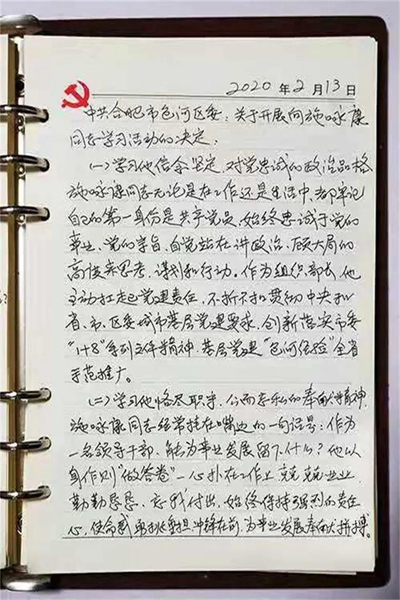 2020年2月13日
中共合肥市包河区委:关于开展向施咏康
同志学习活动的决定:
(一)学习他信念坚定,对党忠诚的政治品格
施咏康同志无论是在工作还是生活中,都牢记
自己的第一身份是共产党员,始终忠诚于党的
事业、党的宗旨,自觉站在讲政治、顾大局的
高度来思考、谋划和行动。作为组织部长,他
主动扛起党建责任,不折不扣贯彻中央和
省、市、区委城市基层党建要求,创新落实市委
“1+8”系列文件精神,基层党建“包河经验”全省
示范推广。
(二)学习他恪尽职守,公而忘私的奉献精神,
施咏康同志经常挂在嘴边的一句话是:作为
一名领导干部,能为事业发展留下什么?他以
身作则“做答卷”一心扑在工作上,兢兢业业,
勤勤恳恳、忘我付出,始终保持强烈的责任
心,使命感,勇挑重担,冲锋在前,为事业发展奉献拼搏。